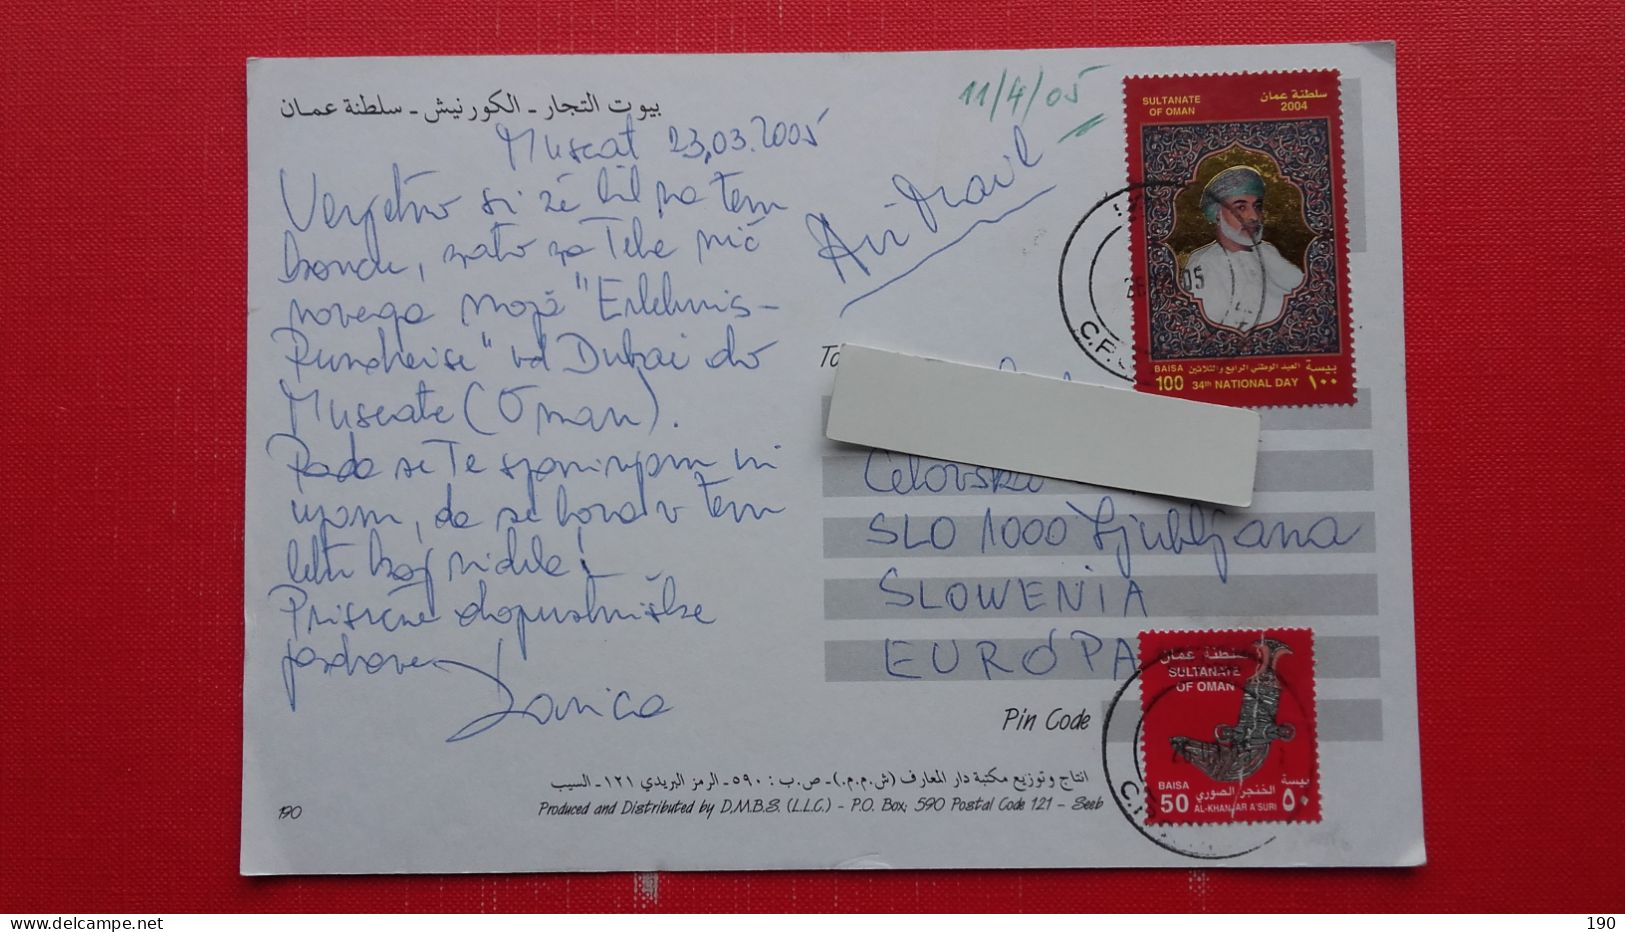 بيوت التجار - الكورنيش - سلطنة عمان
Muscat 23.03.2005
11/4/05
Verjetno si že bil na tem
koncu, zato za Tebe nič
novega moja "Erlebnis-
Rundreise" od Dubai do
Muscata (Oman).
Rada se Te spominjam in
upam, da se bova v tem
letu kaj videla!
Prisrčne dopustniške
pozdrave
Air Mail
To
Celovška
SLO 1000 Ljubljana
SLOWENIA
EUROPA
Pin Code
SULTANATE OF OMAN
سلطنة عمان
2004
BAISA 100
العيد الوطني الرابع والثلاثين
34th NATIONAL DAY
بيسة ١٠٠
سلطنة عمان
SULTANATE
OF OMAN
BAISA 50
الخنجر الصوري
AL-KHANJAR A'SURI
بيسة ٥٠
انتاج وتوزيع مكتبة دار المعارف (ش.م.م.) - ص.ب : ٥٩٠ - الرمز البريدي ١٢١ - السيب
Produced and Distributed by D.M.B.S. (L.L.C.) - P.O. Box; 590 Postal Code 121 - Seeb
190
190